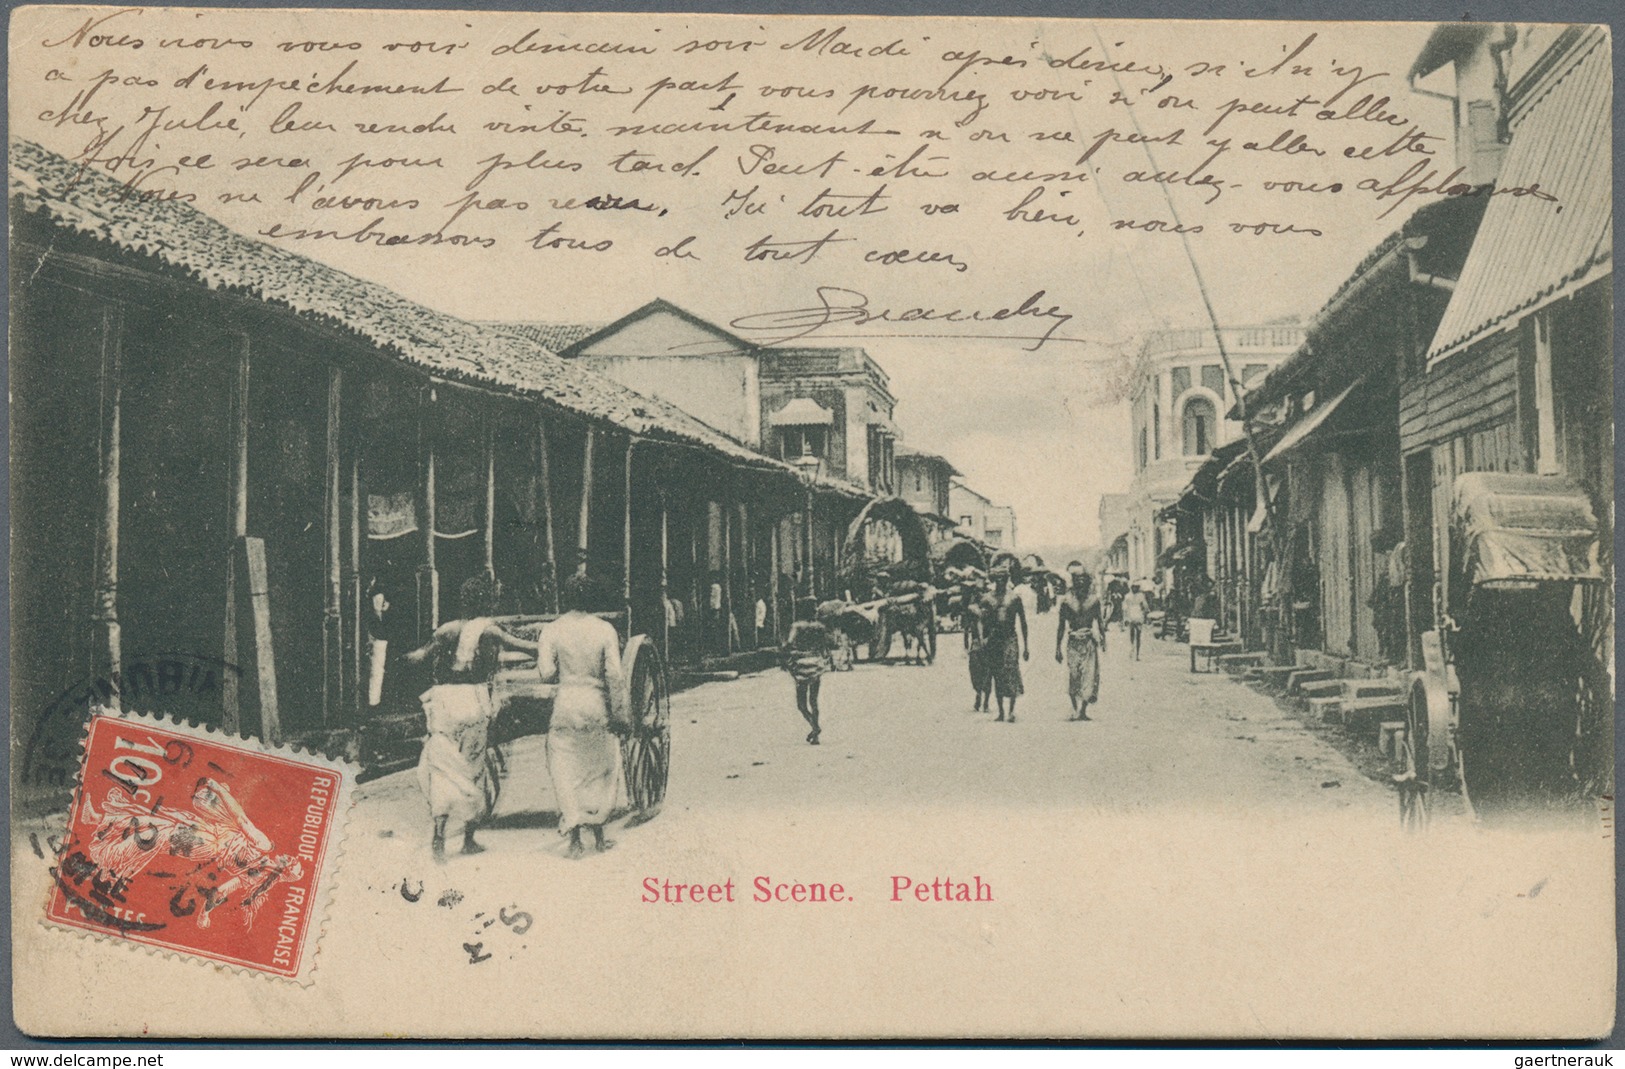 Nous irons vous voir demain soir Mardi après dîner, si il n'y
a pas d'empêchement de votre part, vous pourriez voir si on peut aller
chez Julie, leur rendre visite. maintenant si on ne peut y aller cette
fois ce sera pour plus tard. Peut-être aussi aurez-vous
Nous ne l'avons pas revue. Ici tout va bien, nous vous
embrassons tous de tout cœur
Blanche
10c
REPUBLIQUE FRANÇAISE
POSTES
Street Scene. Pettah
www.delcampe.net
gaertnerauk